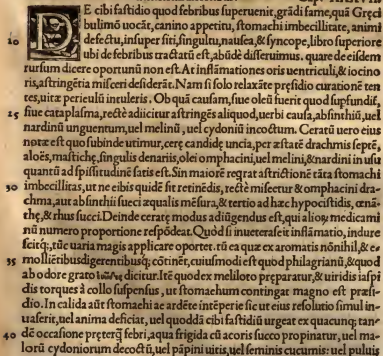 DE cibi fastidio quod febribus superuenit, grādi fame, quā Gręci
bulimō uocāt, canino appetitu, stomachi imbecillitate, animi
20 defectu, insuper siti, singultu, nausea, & syncope, libro superiore
ubi de febribus tractatū est, abūdè disseruimus. quare de eisdem
rursum dicere oportunū non est. At inflāmationes oris uentriculi, & iocino
ris, astringētia misceri desiderāt. Nam si solo relaxāte pręsidio curationē ten
tes, uitæ periculū intuleris. Ob quā causam, siue oleū fuerit quod supfundis,
25 siue cataplasma, rectè adiicitur astringēs aliquod, uerbi causa, absinthiū, uel
nardinū unguentum, uel melinū, uel cydoniū incoctum. Ceratū uero eius
notæ est quo subinde utimur, cerę candidę uncia, per æstatē drachmis septē,
aloës, mastichę, singulis denariis, olei omphacini, uel melini, & nardini in usu
quantū ad spissitudinē satis est. Sin maiorē regrat astrictionē tāta stomachi
30 imbecillitas, ut ne eibis quidē sit retinēdis, rectè misceetur & omphacini dra-
chma, aut absinthii sueci æqualis mēsura, & tertio ad hæc hypocistidis, œnā-
thę, & rhus succi. Deinde ceratę modus adiūgendus est, qui alios medicami
nū numero proportione respōdeat. Quòd si inueterascit inflāmatio, indure
scitq;, tūc uaria magis applicare oportet. tū ea quæ ex aromatis nōnihil, & e-
35 mollientibus digerentibusq; cōtinēt, cuiusmodi est quod philagrianū, & quod
ab odore grato dicitur. Ite quod ex meliloto pręparatur, & uiridis iaspi
dis torques à collo suspensus, ut stomachum contingat magno est pręsi-
dio. In calida aūt stomachi ac ardēte intēperie sic ut eius resolutio simul in-
uaserit, uel anima deficiat, uel quoddā cibi fastidiū urgeat ex quacunq; tan-
40 dē occasione pręterq̃ febri, aqua frigida cū acoris succo propinatur, uel ma-
lorū cydoniorum decoctū, uel pāpini uitis, uel seminis cucumis: uel puluis